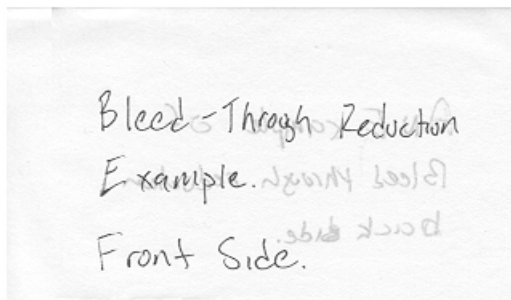 Bleed-Through Reduction
Example.
Front Side.